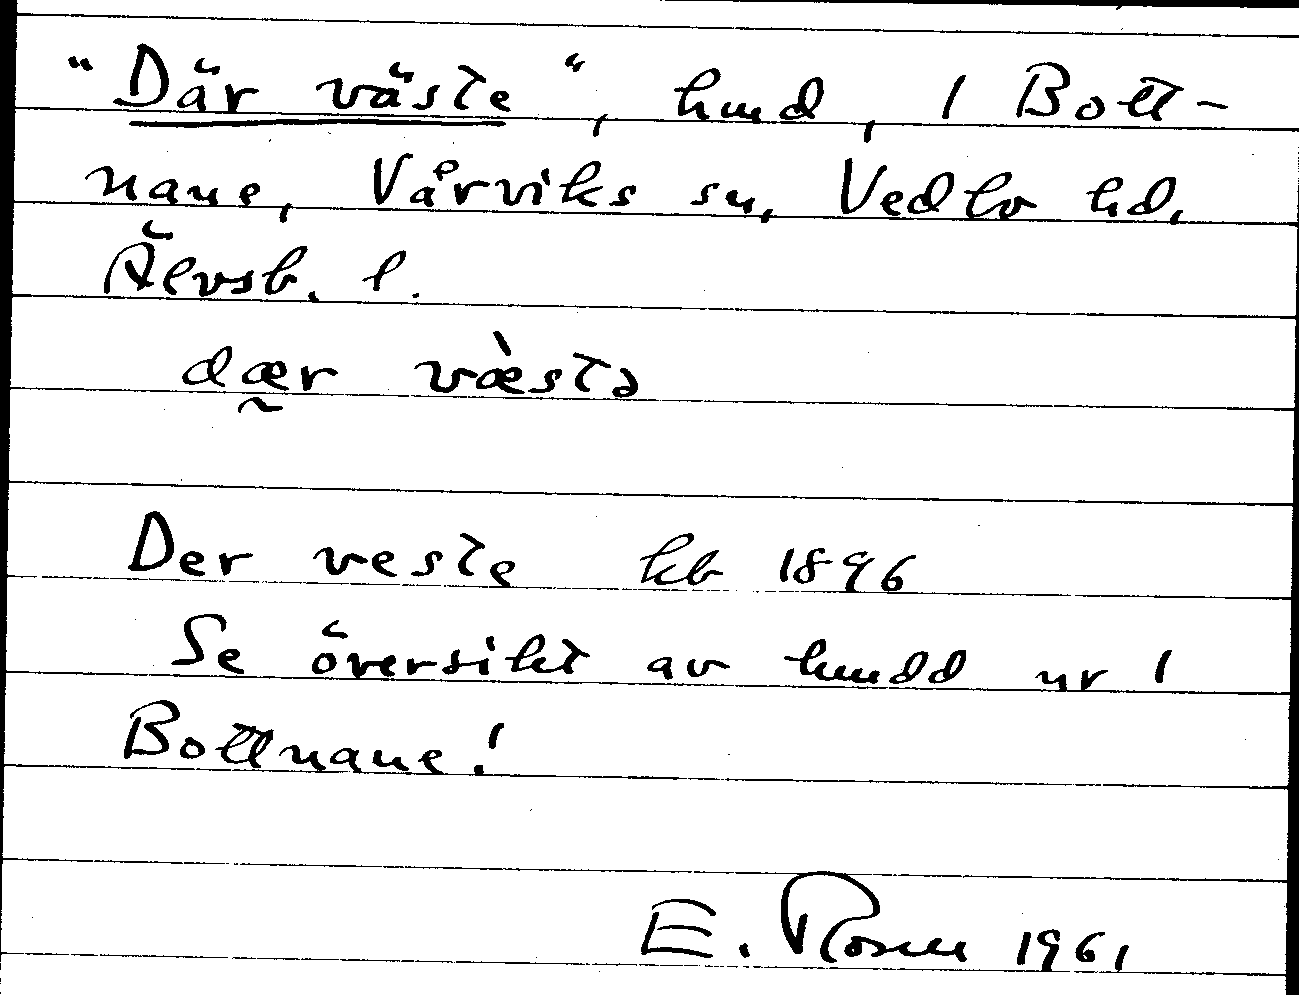 "Där väste", hmd, 1 Bott-
nane, Vårviks sn, Vedbo hd,
Älvsb. l.
dær væ̀stə
Der veste kb 1896
Se översikt av hmdd nr 1
Bottnane!
E. Rosell 1961